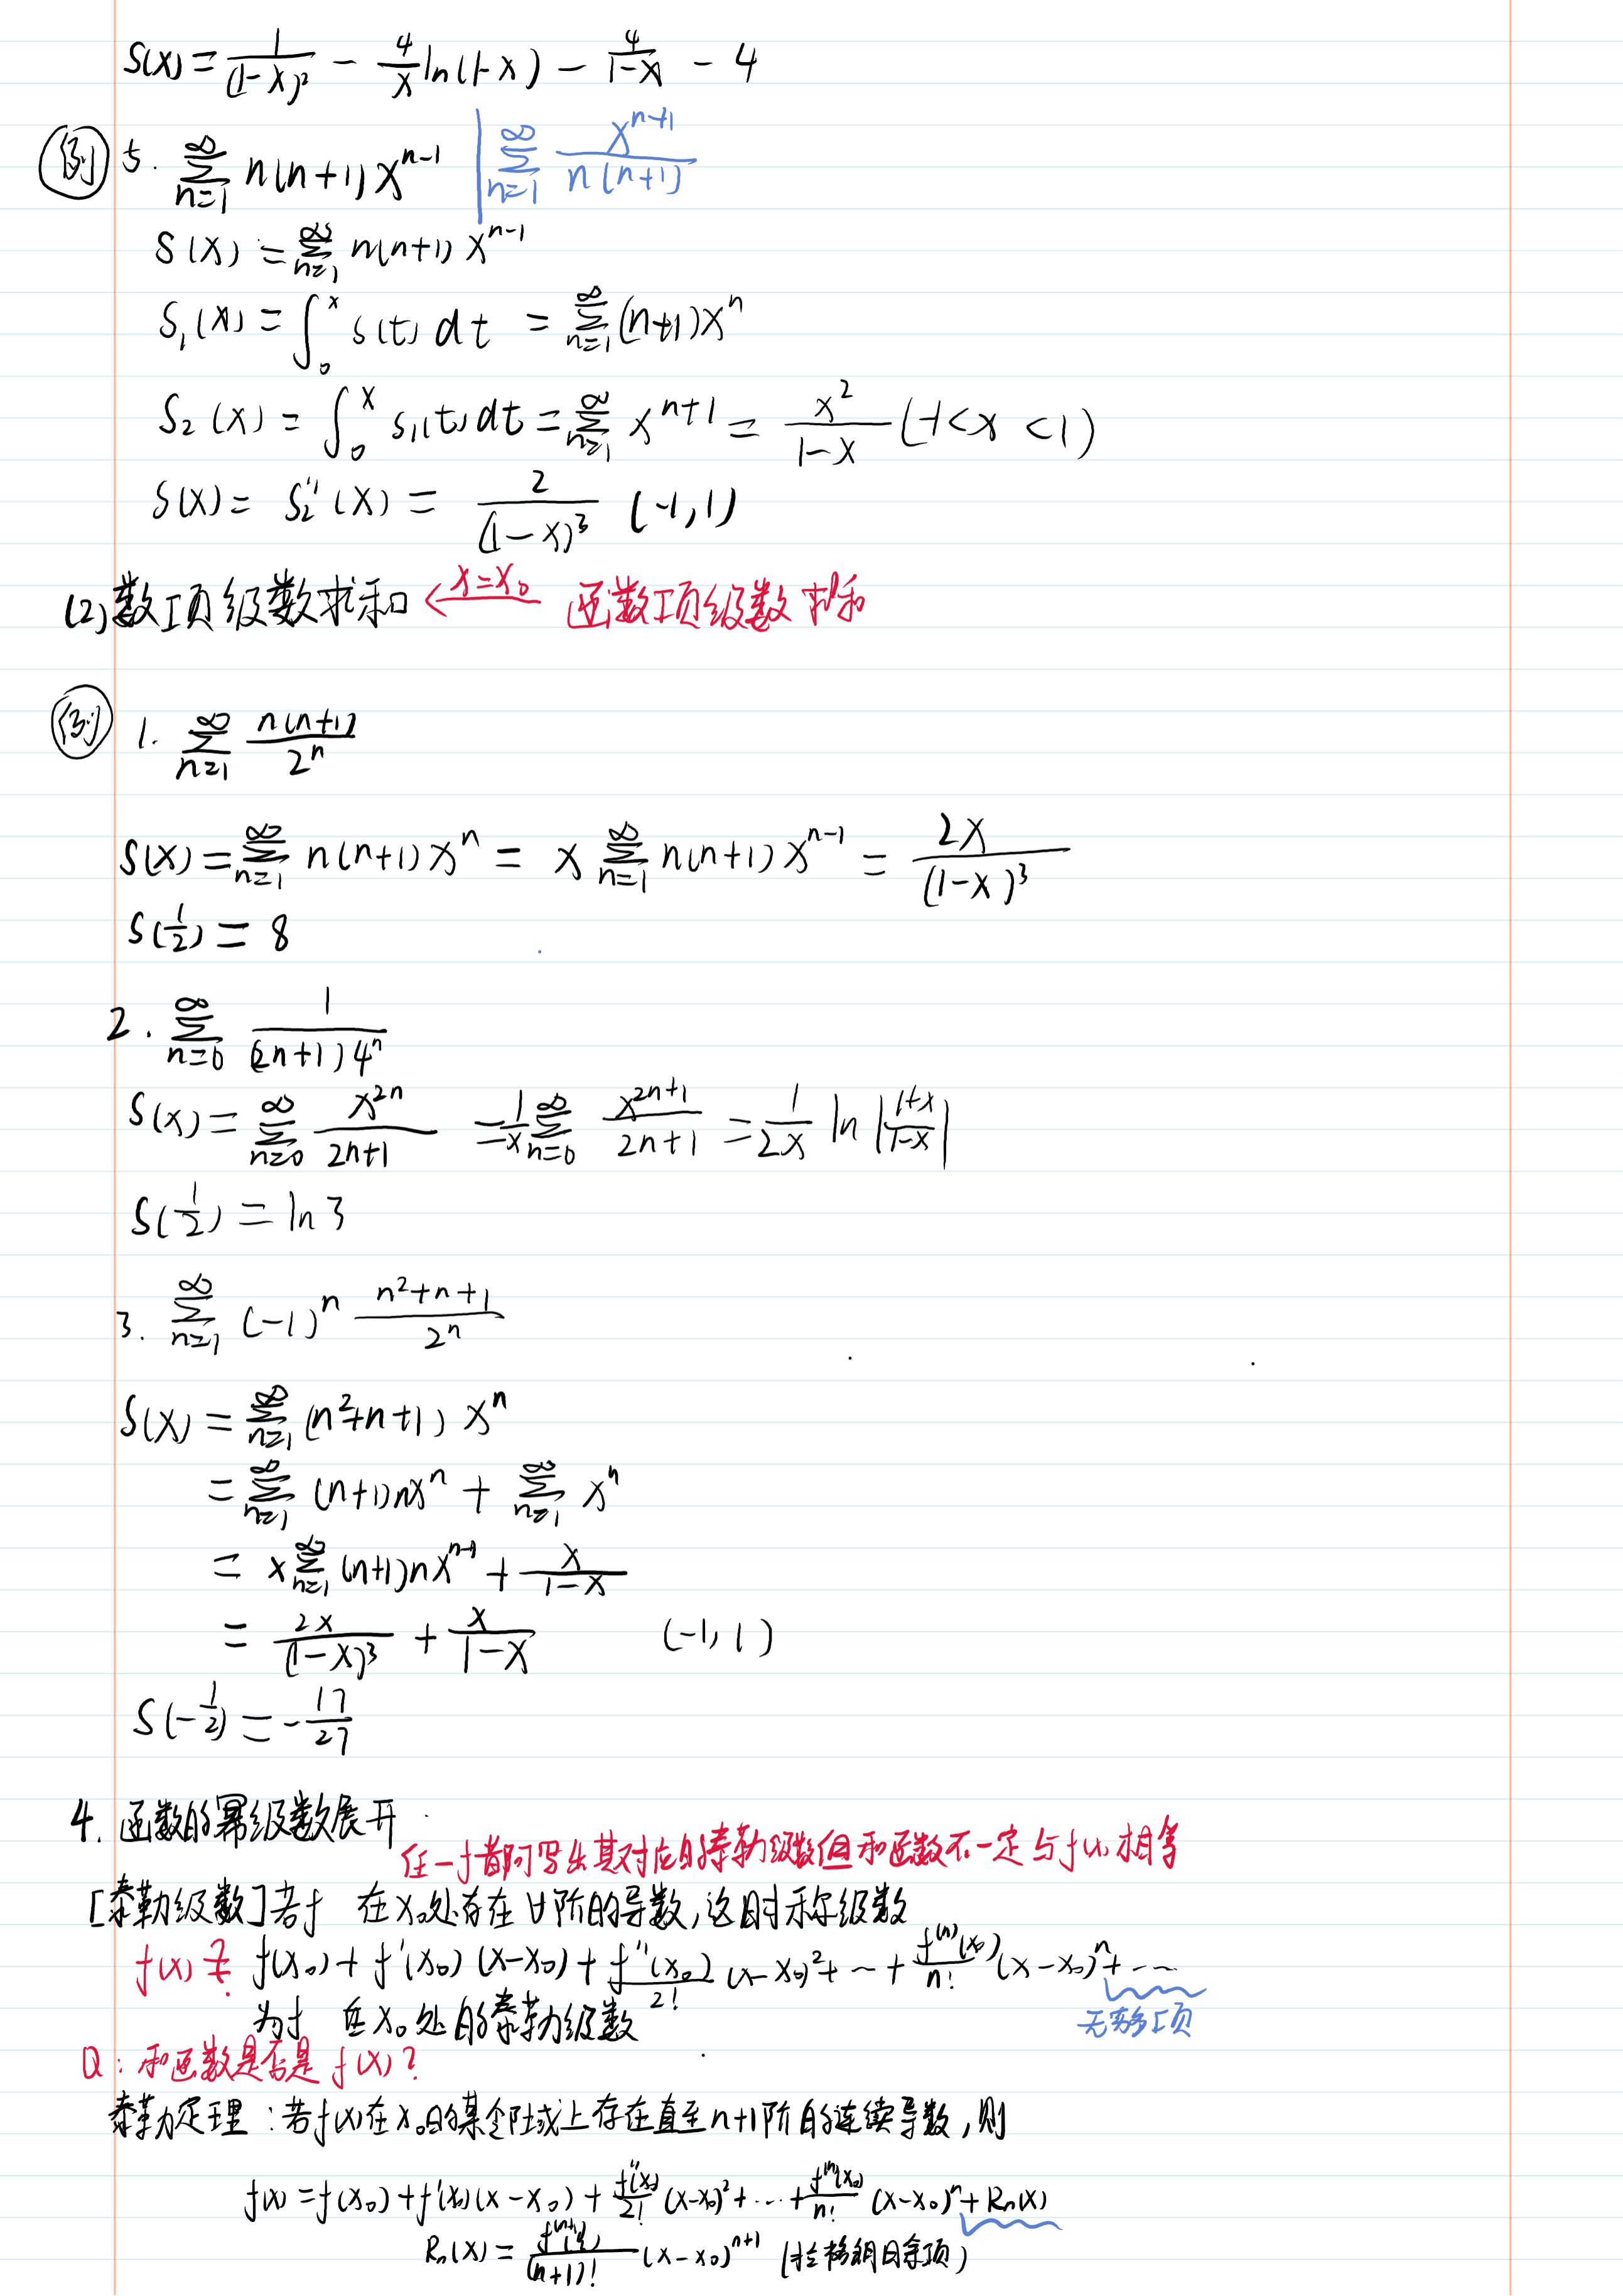 S(x) = \frac{1}{(1-x)^2} - \frac{4}{x} ln(1-x) - \frac{4}{1-x} - 4
例 5. \sum_{n=1}^{∞} n(n+1) x^{n-1} | \sum_{n=1}^{∞} \frac{x^{n+1}}{n(n+1)}
S(x) = \sum_{n=1}^{∞} n(n+1) x^{n-1}
S_1(x) = \int_0^x S(t) dt = \sum_{n=1}^{∞} (n+1) x^n
S_2(x) = \int_0^x S_1(t) dt = \sum_{n=1}^{∞} x^{n+1} = \frac{x^2}{1-x} (-1<x<1)
S(x) = S_2''(x) = \frac{2}{(1-x)^3} (-1,1)
(2) 数项级数求和 \xleftarrow{x=x_0} 函数项级数求和
例 1. \sum_{n=1}^{∞} \frac{n(n+1)}{2^n}
S(x) = \sum_{n=1}^{∞} n(n+1) x^n = x \sum_{n=1}^{∞} n(n+1) x^{n-1} = \frac{2x}{(1-x)^3}
S(\frac{1}{2}) = 8
2. \sum_{n=0}^{∞} \frac{1}{(2n+1)4^n}
S(x) = \sum_{n=0}^{∞} \frac{x^{2n}}{2n+1} = \frac{1}{x} \sum_{n=0}^{∞} \frac{x^{2n+1}}{2n+1} = \frac{1}{2x} ln|\frac{1+x}{1-x}|
S(\frac{1}{2}) = ln 3
3. \sum_{n=1}^{∞} (-1)^n \frac{n^2+n+1}{2^n}
S(x) = \sum_{n=1}^{∞} (n^2+n+1) x^n
= \sum_{n=1}^{∞} (n+1)n x^n + \sum_{n=1}^{∞} x^n
= x \sum_{n=1}^{∞} (n+1)n x^{n-1} + \frac{x}{1-x}
= \frac{2x}{(1-x)^3} + \frac{x}{1-x} (-1,1)
S(-\frac{1}{2}) = -\frac{17}{27}
4. 函数的幂级数展开
任一f都可写出其对应的泰勒级数但和函数不一定与f(x)相等
[泰勒级数] 若f 在x_0处存在∀阶的导数,这时称级数
f(x) \overset{?}{=} f(x_0) + f'(x_0)(x-x_0) + \frac{f''(x_0)}{2!}(x-x_0)^2 + ⋯ + \frac{f^{(n)}(x_0)}{n!}(x-x_0)^n + ⋯
为f 在x_0处的泰勒级数 无穷多项
Q: 和函数是否是f(x)?
泰勒定理:若f(x)在x_0的某邻域上存在直至n+1阶的连续导数,则
f(x) = f(x_0) + f'(x_0)(x-x_0) + \frac{f''(x_0)}{2!}(x-x_0)^2 + ⋯ + \frac{f^{(n)}(x_0)}{n!}(x-x_0)^n + R_n(x)
R_n(x) = \frac{f^{(n+1)}(ξ)}{(n+1)!}(x-x_0)^{n+1} (拉格朗日余项)